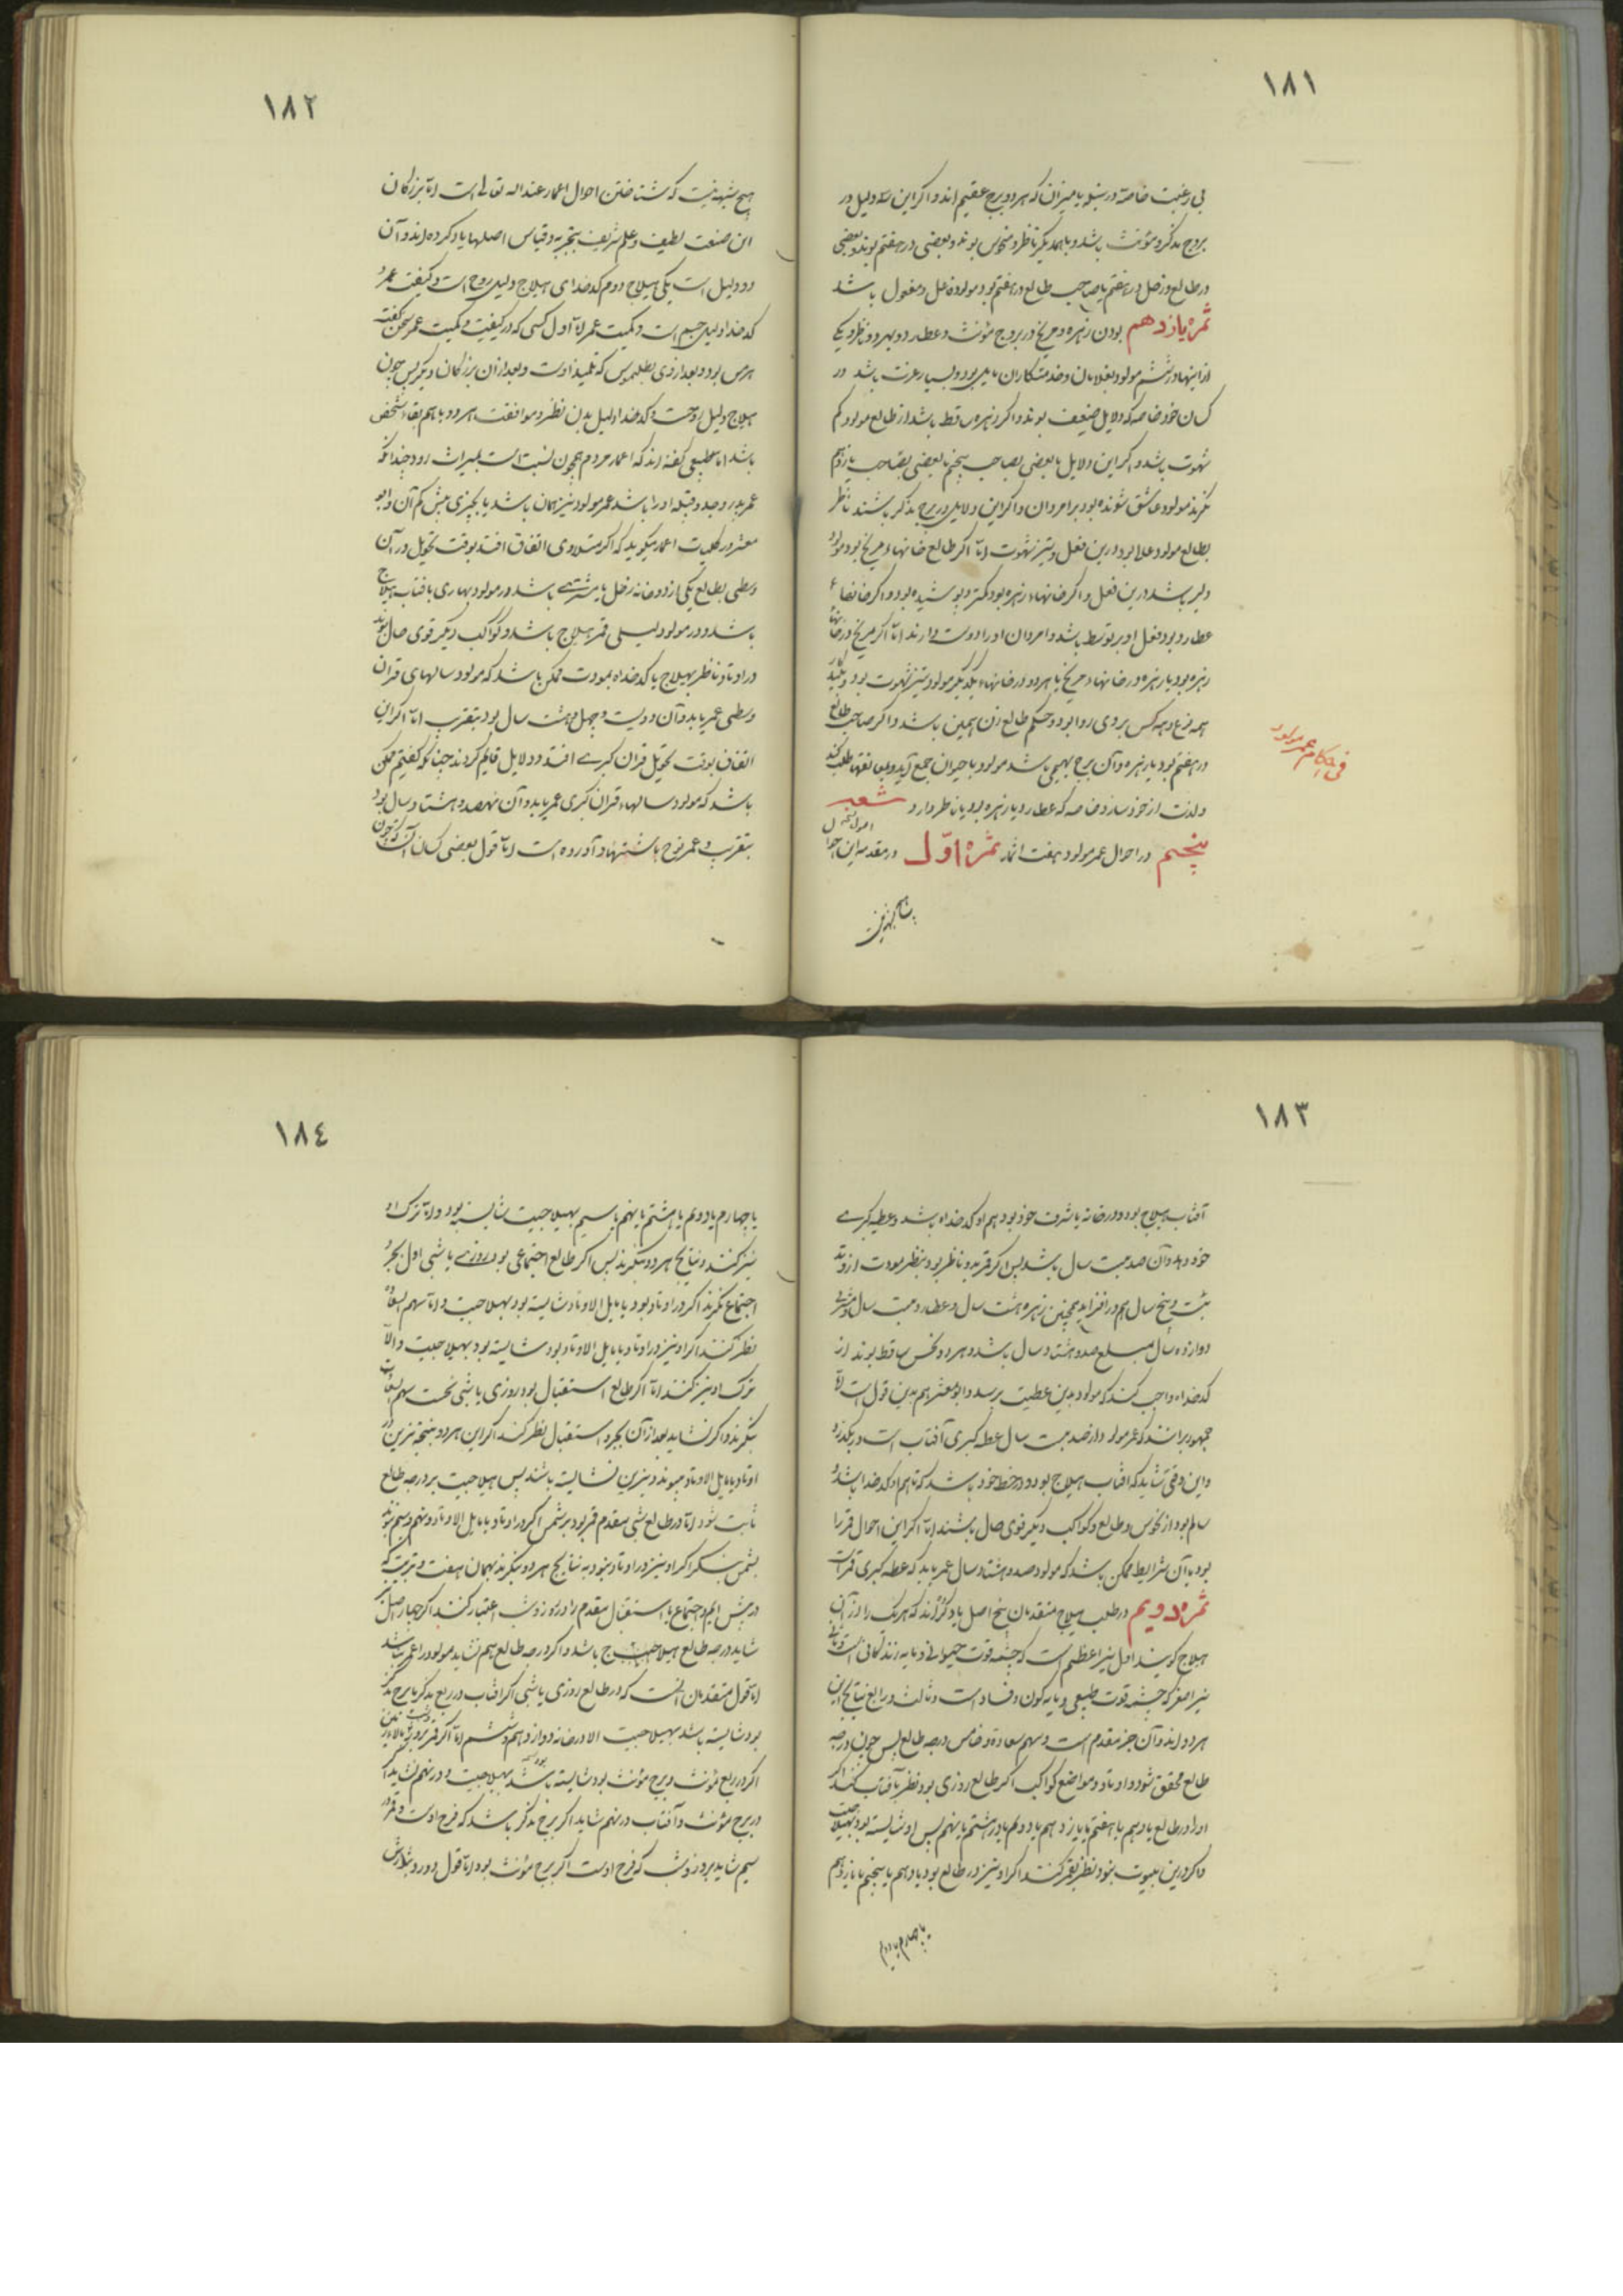 ١٨١
بی رغبت خاصة در سنبله یا میزان که هر دو برج عقیم اند و اکر این سه دلیل در
بروج مذکر و مؤنث باشد و با همدیکر ناظر و منحوس بوند و بعضی در هفتم بوند و بعضی
در طالع و زحل در هفتم یا صاحب طالع در هفتم بود مولود فاعل و مفعول باشد
ثمره یازدهم بودن زهره و مریخ در بروج مؤنث و عطارد و بهر دو ناظر و یکی
از اینها در ششم مولود بغلامان و خدمتکاران مایل بود و بسیار عزت باشد در
کسان خود خاصه که دلایل ضعیف بوند و اکر زهره ساقط باشد از طالع مولود کم
شهوت باشد و اکر این دلایل با بعضی بصاحب پنجم یا بعضی بصاحب یازدهم
نکرند مولود عاشق شونده بود بر امردان و اکر این دلایل در برج مذکر باشند ناظر
بطالع مولود علا بود درین فعل و تیز شهوت اما اکر طالع خانهاء مریخ بود مولود
دلیر باشد درین فعل و اکر خانهاء زهره بود کمتر و پوشیده بود و اکر خانهاء
عطارد بود فعل او بر توسط باشد و امردان او را دوست دارند اما اکر مریخ در خانهاء
زهره بود یا زهره در خانهاء مریخ یا هر دو در خانهاء یکدیکر مولود تیز شهوت بود
همه نوع و همه کس بر وی روا بود و حکم طالع زن همین باشد و اکر صاحب طالع
در هفتم بود یا زهره و آن برج بهیمی باشد مولود با حیوان جمع آید
و لذت از خود سازد خاصه که عطارد یا زهره بود یا ناظر دارد شعبه
پنجم در احوال عمر مولود هفت اثمار ثمره اوّل در مقدمه این احوال
فی احکام عمر مولود
١٨٢
هیچ شبهه نیست که شناختن احوال اعمار عند اله تعالی است اما بزرکان
این صنعت لطیف و علم شریف بتجربه و قیاس اصلها یاد کرده اند و آن
دو دلیل است یکی هیلاج دوم کدخدای هیلاج دلیل روح است و کیفیت عمر و
کدخدا دلیل جسم است و کمیت عمر اما اول کسی که در کیفیت و کمیت عمر سخن کفته
هرمس بود و بعد از وی بطلمیوس که تلمیذ اوست و بعد از آن بزرکان دیکر پس چون
هیلاج دلیل روحست و کدخدا دلیل بدن نظر و موافقت هر دو با هم بقاء شخص
باشد اما طبیعی کفته اند که اعمار مردم همچون نسبت است بمیراث رود چنانکه
عمر پدر و جد و قبیله او را باشد عمر مولود نیز همان باشد یا بچیزی بیش کم آن و ابو
معشر در کلیات اعمار میکوید که اکر میلادی اتفاق افتد بوقت تحویل قرآن
وسطی بطالع یکی از دو خانه زحل یا مشتری باشد در مولود بهاری یا آفتاب هیلاج
باشد و در مولود لیلی قمر هیلاج باشد و کواکب دیکر قوی حال بوند
در اوتاد و ناظر بهیلاج یا کدخداه بمودت ممکن باشد که مولود سالهای قرآن
وسطی عمر یابد و آن دویست و چهل و هشت سال بود بتقریب اما اکر این
اتفاق بوقت تحویل قران کبری افتد و دلایل قایم کردند چنانکه کفتیم ممکن
باشد که مولود سالهاء قران کبری عمر یابد و آن نهصد و هشتاد سال بود
بتقریب و عمر نوح باستشهاد آورده است اما قول بعضی کسان آنست که چون
١٨٣
آفتاب هیلاج بود و در خانه یا شرف خود بود هم او کدخداه باشد و عطیه کبری
خود دهد و آن صد بیست سال باشد پس اکر قمر بدو ناظر بود بنظر مودت از وتد
بیست و پنج سال هم در افزاید همچنین زهره هشت سال و عطارد بیست سال و مشتری
دوازده سال مبلغ صد و هشتاد سال باشد و هر دو نحس ساقط بوند از
کدخداه واجب کند که مولود بدین عطیت برسد و ابو معشر هم بدین قول است اما
جمهور بر انند که عمر مولود از صد بیست سال عطیه کبری آفتاب است در نکذرد
و این وقتی شاید که افتاب هیلاج بود و در حظ خود باشد که تا هم او کدخدا باشد و
سالم بود از نحوس و طالع و کواکب دیکر قوی حال باشند اما اکر این احوال قمر را
بود با آن شرایط ممکن باشد که مولود صد و هشتاد سال عمر یابد که عطیه کبری قمر است
ثمره دویم در طلب هیلاج متقدمان پنج اصل یاد کرده اند که هر یک را از آن
هیلاج کویند اول نیر اعظم است که چشمه قوت حیوانی و مایه زندکانی است و ثانی
نیر اصغر که چشمه قوت طبیعی و مایه کون و فساد است و ثالث و رابع نتایج این
هر دو اند و آن جزء مقدم است و سهم سعادة و خامس درجه طالع پس چون درجه
طالع محقق شود و اوتاد و مواضع کواکب اکر طالع روزی بود نظر بآفتاب کنند اکر
او را در طالع یا دهم یا هفتم یا یازدهم یا دوم یا در هشتم یا نهم پس او شایسته بود بهیلاجیت
و اکر درین بیوت نبود نظر بقمر کنند اکر او نیز در طالع بود یا دهم یا پنجم یا یازدهم
یا چهارم یا دوم
١٨٤
یا چهارم یا دوم یا هشتم یا نهم یا سیم بهیلاجیت شایسته بود و اما ترک او
نیز کنند و نتایج هر دو نکرند پس اکر طالع اجتماعی بود روزی یا شبی اول بجزو
اجتماع نکرند اکر در اوتاد بود یا مایل الاوتاد شایسته بود بهیلاجیت و اما سهم السعاده
نظر کنند اکر او نیز در اوتاد یا مایل الاوتاد بود شایسته بود بهیلاجیت و الا
ترک او نیز کنند اما اکر طالع استقبال بود روزی یا شبی نخست سهم السعادت
نکرند و اکر نشاید بعد از آن بجزو استقبال نظر کنند اکر این هر دو نتیجه نیرین در
اوتاد یا مایل الاوتاد نبوند و نیرین نشایسته باشند پس هیلاجیت بر درجه طالع
ثابت شود اما در طالع شبی مقدم قمر بود بر شمس اکر در اوتاد یا مایل الاوتاد و نهم و سیم نبود
بشمس بنکر اکر او نیز در اوتاد نبود به نتایج هر دو نیکرند بهمان صفت و ترتیب که
در شمس کفتیم و اجتماع یا استقبال مقدم را در روز و شب اعتبار کنند اکر چهار اصل
شاید درجه طالع هیلاج باشد و اکر درجه طالع هم نشاید مولود را عمر نباشد
اما قول متقدمان آنست که در طالع روزی یا شبی اکر افتاب در ربع مذکر یا برج مذکر
بود شایسته باشد بهیلاجیت الا در خانه دوازدهم و ششم اما اکر قمر بود
اکر در ربع مؤنث و برج مؤنث بود شایسته باشد بهیلاجیت و در نهم نشاید
در برج مؤنث و آفتاب در نهم شاید اکر برج مذکر باشد که فرح اوست و قمر در
سیم شاید بروز و شب که فرح اوست اکر برج مؤنث بود اما قول دورویثاوش